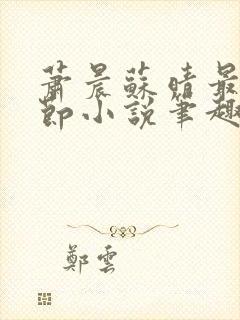 蕭晨蘇晴最
節小說筆趣
鄭雲